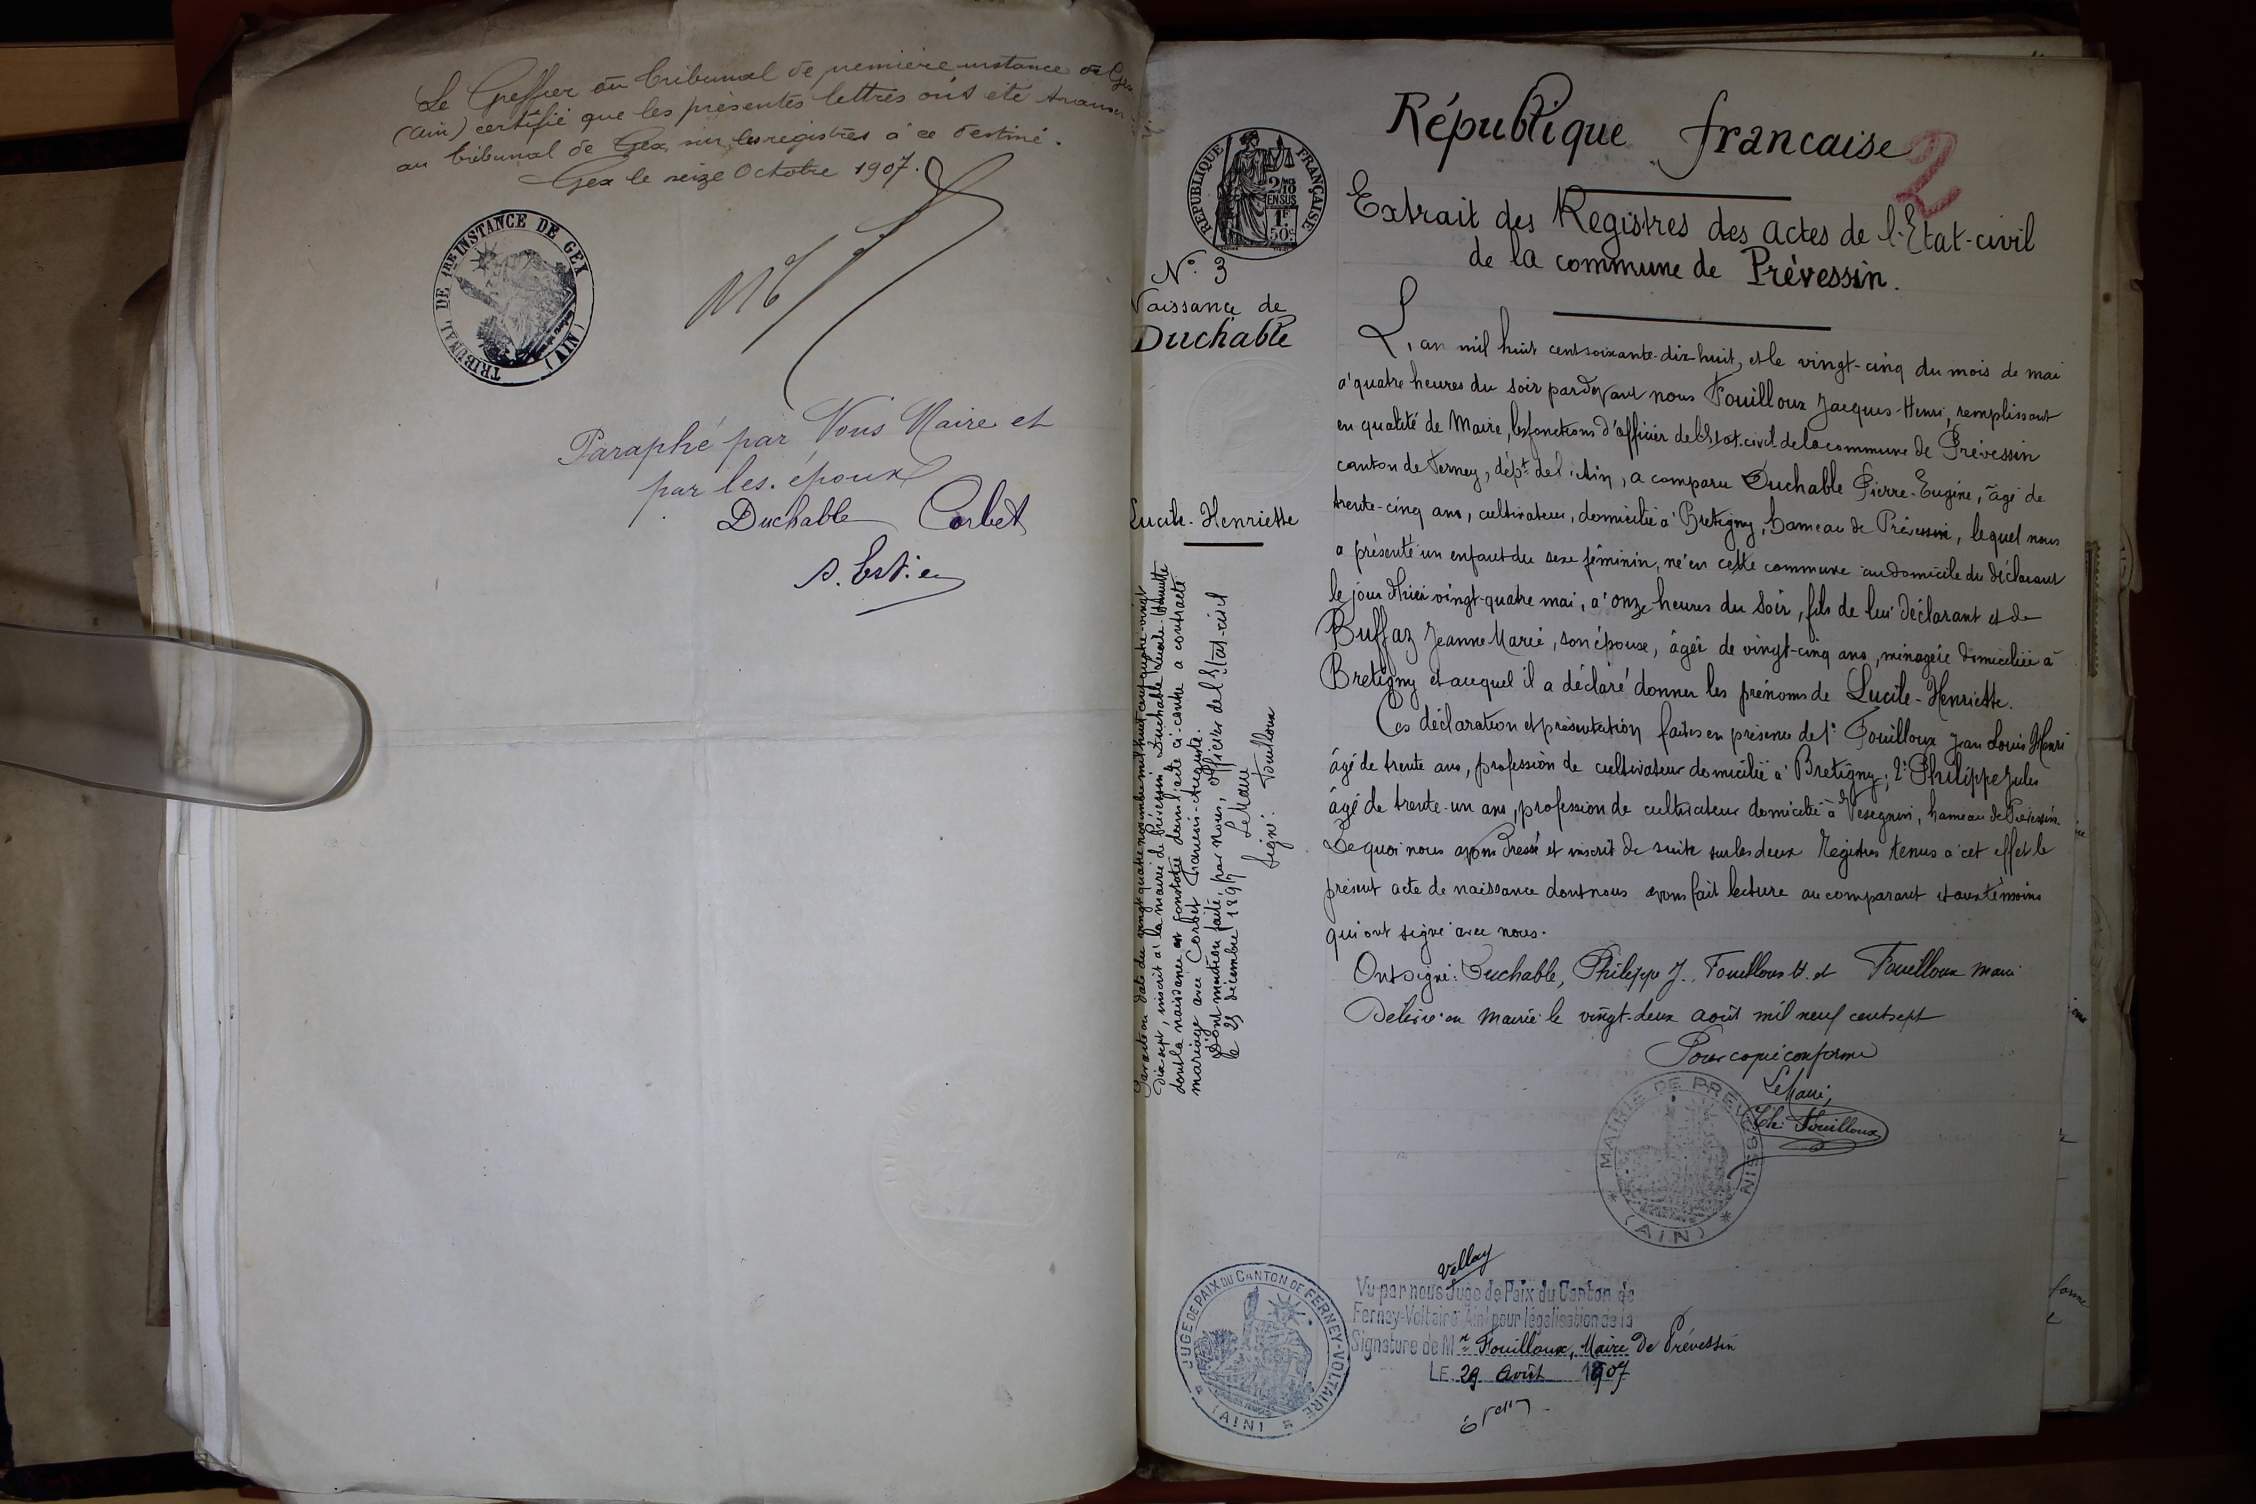 Le Greffier du tribunal de première instance de Gex
(Ain) certifie que les présentes lettres ont été
au tribunal de Gex sur les registres à ce destiné.
Gex le seize Octobre 1907.
TRIBUNAL DE 1RE INSTANCE DE GEX (AIN)
Paraphé par Nous Maire et
par les époux
Duchable Corbet
République française
2
REPUBLIQUE FRANÇAISE
2/10 EN SUS
1F 50c
Extrait des Registres des actes de l'Etat-civil
de la commune de Prévessin.
No. 3
Naissance de
Duchable
Lucile-Henriette
L'an mil huit cent soixante-dix-huit, et le vingt-cinq du mois de mai
à quatre heures du soir par devant nous Fouilloux Jacques-Henri, remplissant
en qualité de Maire, les fonctions d'officier de l'Etat-civil de la commune de Prévessin
canton de Ferney, dépt de l'Ain, a comparu Duchable Pierre-Eugène, âgé de
trente-cinq ans, cultivateur, domicilié à Bretigny, hameau de Prévessin, lequel nous
a présenté un enfant du sexe féminin, né en cette commune au domicile du déclarant
le jour d'hier vingt-quatre mai, à onze heures du soir, fils de lui déclarant et de
Buffaz Jeanne Marie, son épouse, âgée de vingt-cinq ans, ménagère domiciliée à
Bretigny et auquel il a déclaré donner les prénoms de Lucile-Henriette.
Ces déclaration et présentation faites en présence de 1° Fouilloux Jean Louis Henri
âgé de trente ans, profession de cultivateur domicilié à Bretigny; 2° Philippe Jules
âgé de trente-un ans, profession de cultivateur domicilié à Vesegnin, hameau de Prévessin.
De quoi nous avons dressé et inscrit de suite sur les deux Registres tenus à cet effet le
présent acte de naissance dont nous avons fait lecture au comparant et aux témoins
qui ont signé avec nous.
Ont signé: Duchable, Philippe J., Fouilloux H. et Fouilloux maire
Délivré en Mairie le vingt-deux août mil neuf cent sept
Pour copie conforme
Le Maire,
Ch. Fouilloux
MAIRIE DE PREVESSIN * (AIN) *
Par acte en date du vingt quatre novembre mil huit cent quatre-vingt
dix sept, inscrit à la mairie de Prévessin Duchable Lucile-Henriette
dont la naissance est constatée dans l'acte ci-contre a contracté
mariage avec Corbet François-Auguste.
Dont mention faite, par nous, Officier de l'Etat-civil
le 25 décembre 1897 Le Maire
Signé: Fouilloux
JUGE DE PAIX DU CANTON DE FERNEY-VOLTAIRE (AIN)
Vu par nous Juge de Paix du Canton de
Ferney-Voltaire (Ain) pour légalisation de la
Signature de Mr Fouilloux, Maire de Prévessin
LE 29 Août 1907